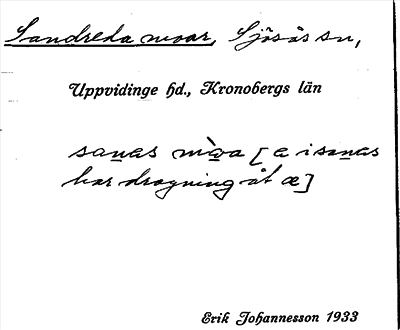 Sandreda moar, Sjösås sn,
Uppvidinge hd., Kronobergs län
sanas mòva [a i sanas
har dragning åt æ]
Erik Johannesson 1933